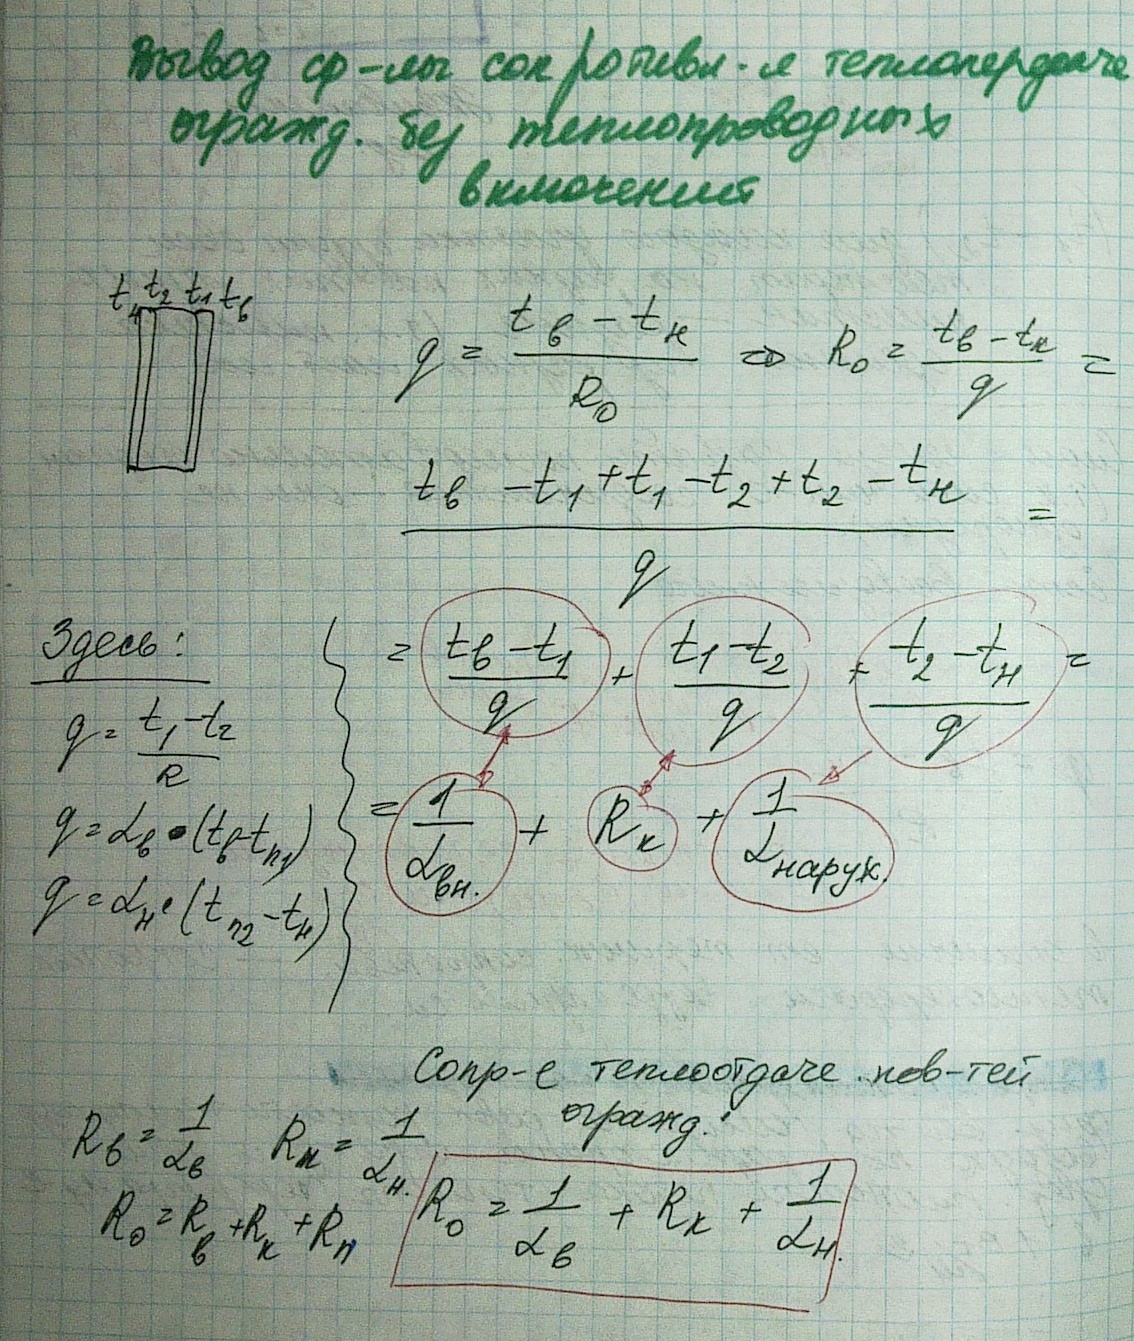 Вывод ф-лы сопротивл-я теплопередаче
огражд. без теплопроводных
включений
tн t2 t1 tв
q = (tв - tн) / R0 => R0 = (tв - tн) / q =
(tв - t1 + t1 - t2 + t2 - tн) / q =
= (tв - t1) / q + (t1 - t2) / q + (t2 - tн) / q =
= 1 / αвн. + Rк + 1 / αнаруж.
Здесь:
q = (t1 - t2) / R
q = αв • (tв - tп1)
q = αн • (tп2 - tн)
Сопр-е теплоотдаче пов-тей
огражд.:
Rв = 1 / αв Rн = 1 / αн.
R0 = Rв + Rк + Rн
R0 = 1 / αв + Rк + 1 / αн.